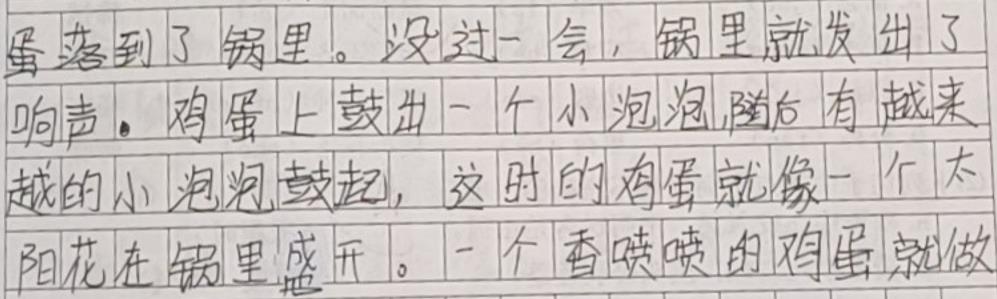 蛋落到了锅里。没过一会，锅里就发出了
响声。鸡蛋上鼓出一个小泡泡,随后有越来
越的小泡泡鼓起，这时的鸡蛋就像一个太
阳花在锅里盛开。一个香喷喷的鸡蛋就做